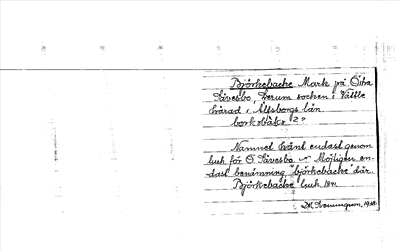 Björkebacke Mark på Östra
Sävesbo, Lerum socken i Vättle
härad, Älfsborgs län
borkəbàkə 2
Namnet känt endast genom
luk. för Ö. Sävesbo – Möjligen en-
dast benämning "björkebacke" där.
Björkebacke luk.
1918.